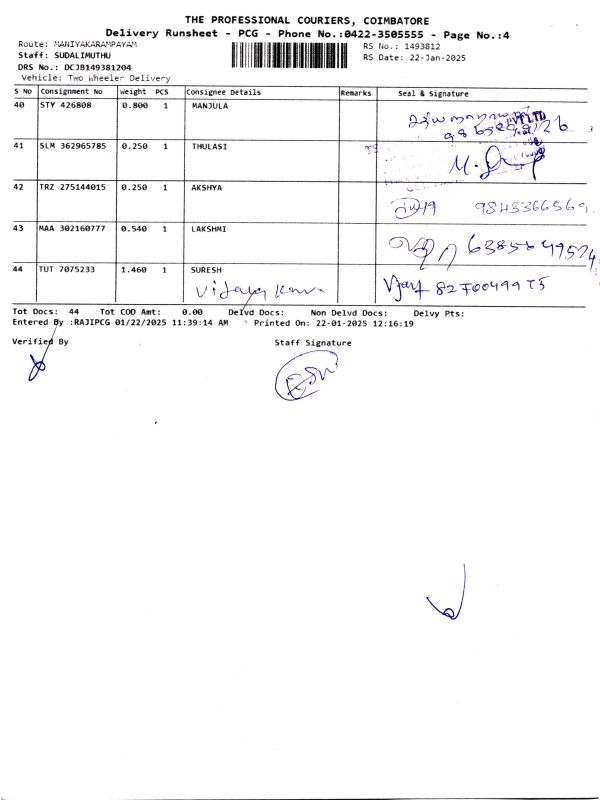 THE PROFESSIONAL COURIERS, COIMBATORE
Delivery Runsheet - PCG - Phone No.:0422-3505555 - Page No.:4
Route: MANIYAKARAMPAYAM RS No.: 1493812
Staff: SUDALIMUTHU RS Date: 22-Jan-2025
DRS No.: DCJB149381204
Vehicle: Two Wheeler Delivery
S No Consignment No Weight PCS Consignee Details Remarks Seal & Signature
40 STY 426808 0.800 1 MANJULA
41 SLM 362965785 0.250 1 THULASI
42 TRZ 275144015 0.250 1 AKSHYA 9843366569.
43 MAA 302160777 0.540 1 LAKSHMI
44 TUT 7075233 1.460 1 SURESH
Tot Docs: 44 Tot COD Amt: 0.00 Delvd Docs: Non Delvd Docs: Delvy Pts:
Entered By :RAJIPCG 01/22/2025 11:39:14 AM Printed On: 22-01-2025 12:16:19
Verified By Staff Signature